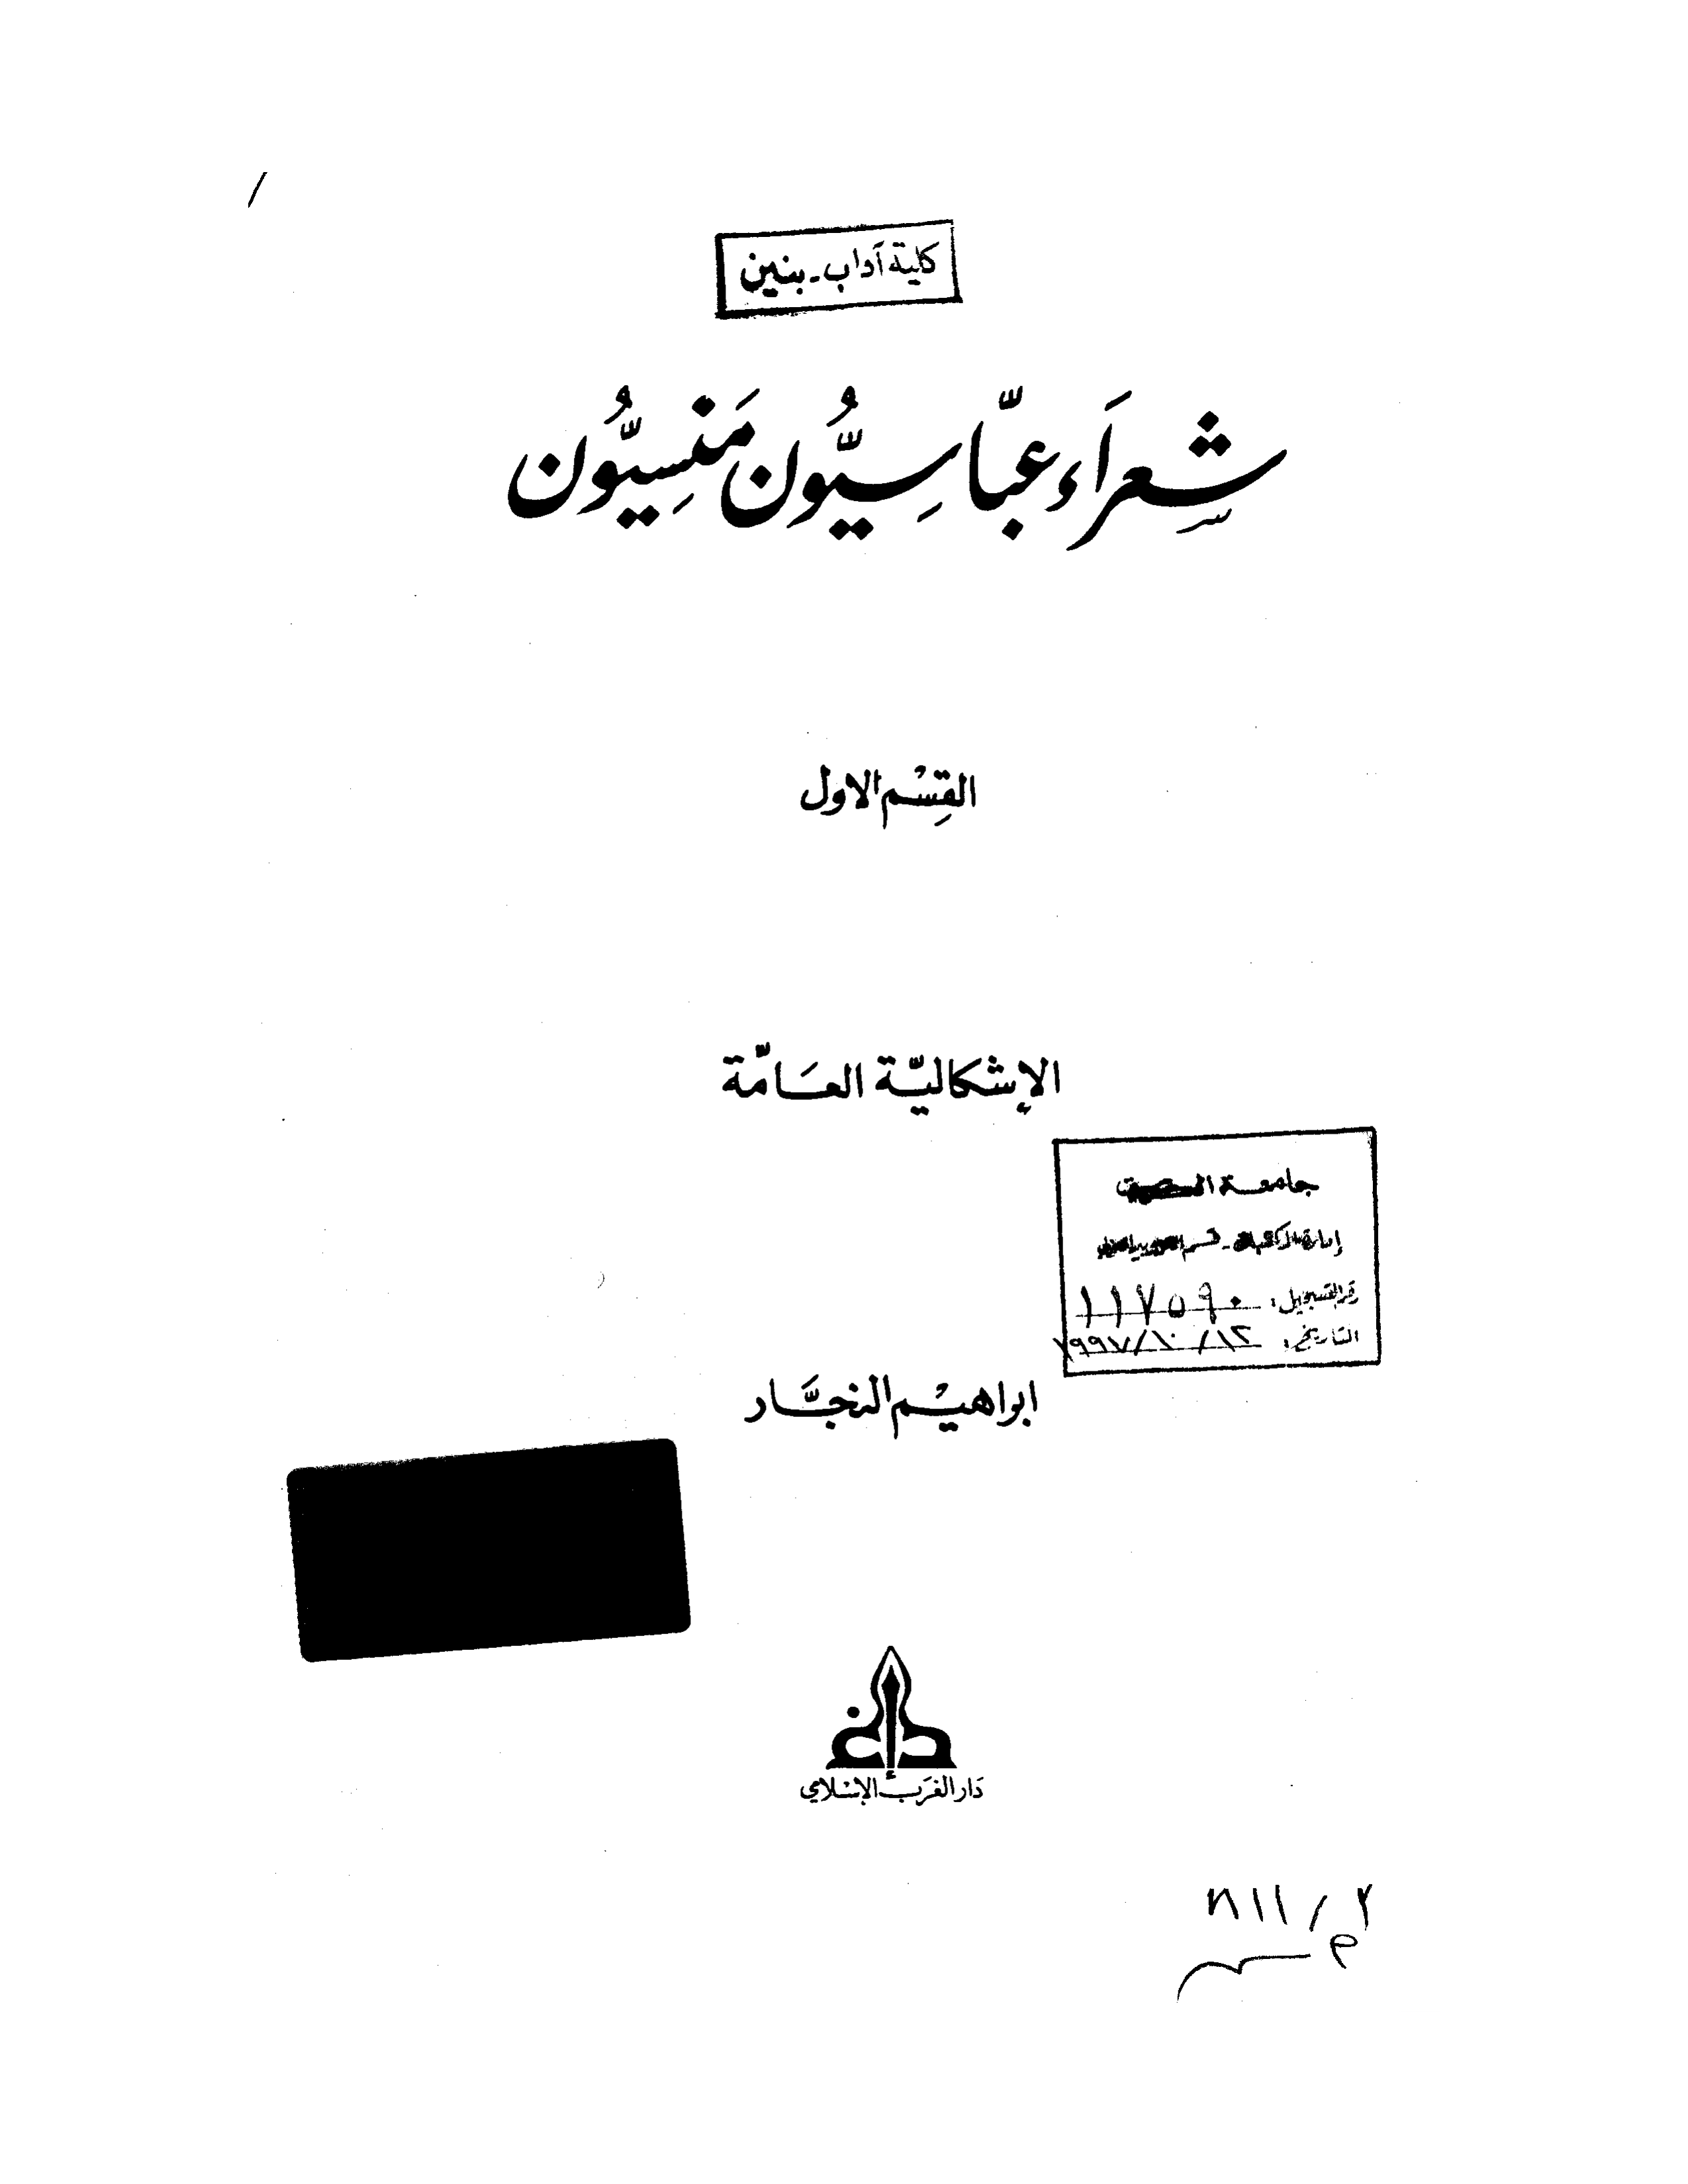 كلية آداب - بنين
شِعراَء عبّاسِيُّون مَنسِيُّون
القِسْم الاول
الإشكاليّة العَامّة
جامعة
رقم التسجيل: ١١٧٥٩٠
التاريخ: ١٩٩٧/١٠/١٢
ابراهيْم النجَّار
دَار الغَرب الإسْلامي
٨١١/٢
م